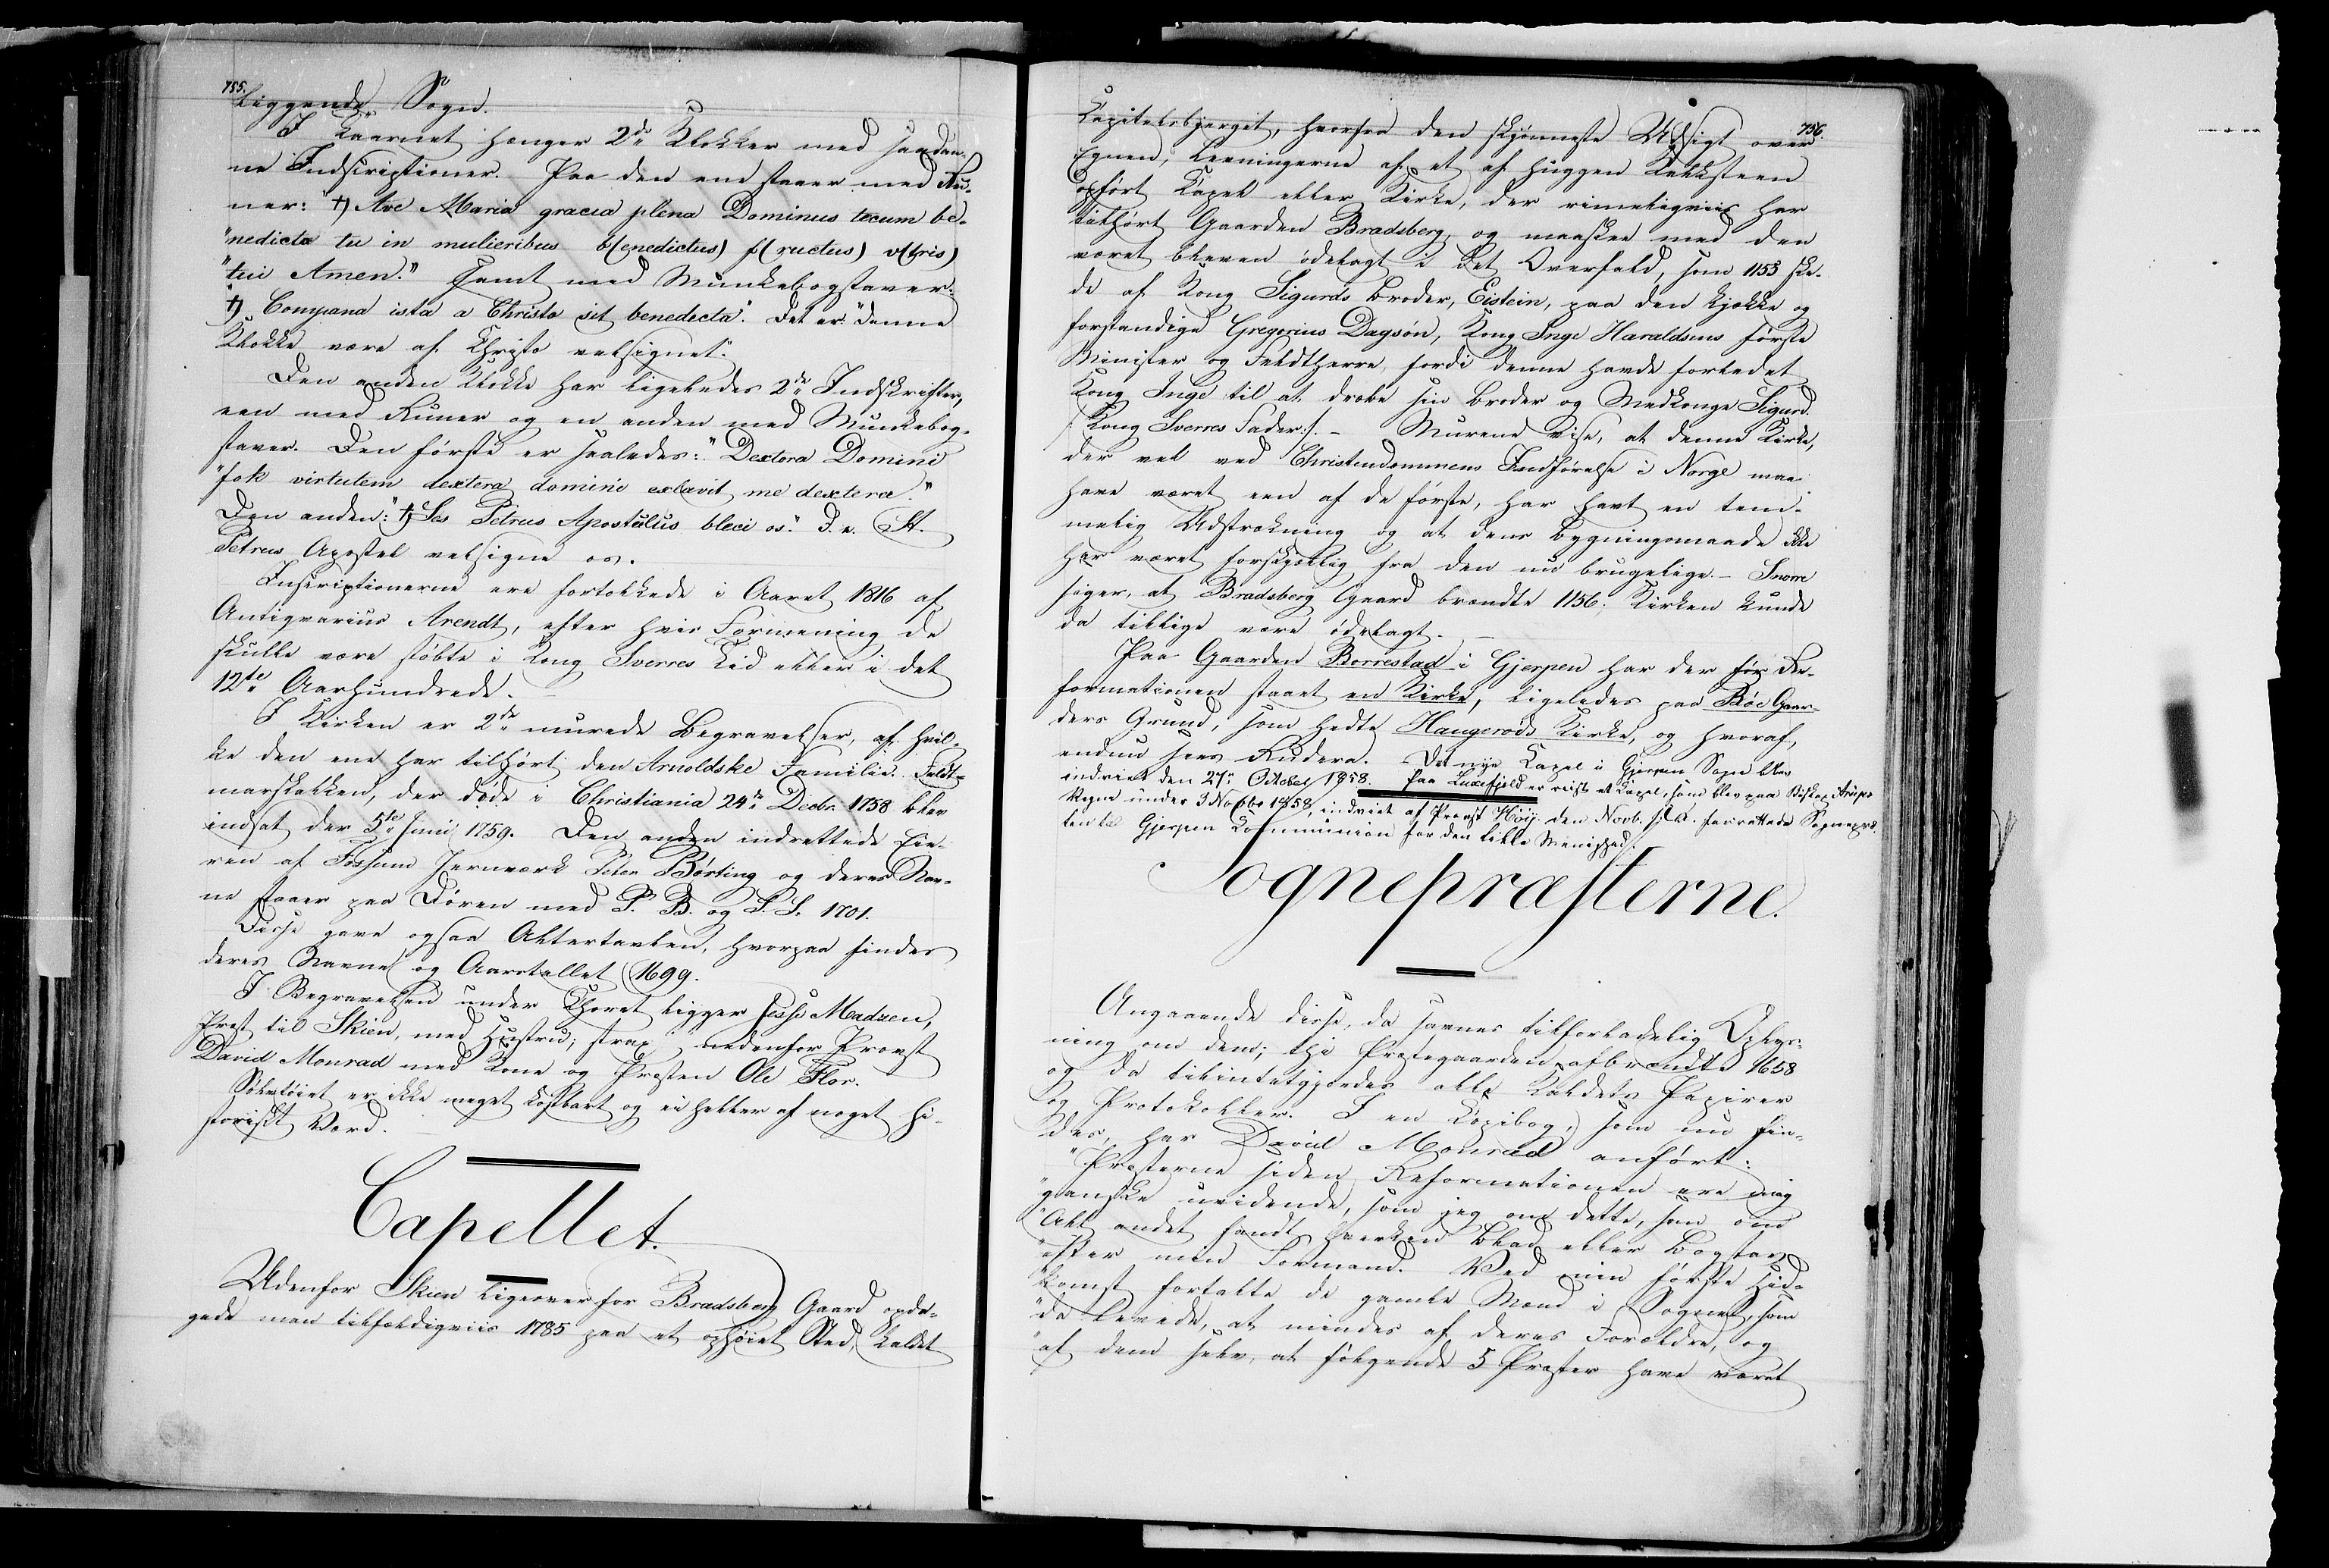 755.
liggende Sogn.
I Taarnet hænger 2de Klokker med saadan-
ne Indscriptioner. Paa den ene staaer med Ru-
ner: "†) Ave Maria gracia plena Dominus tecum be-
"nedicta tu in mulieribus b(enedictus) f(ructus) v(tris)
"tui Amen." Samt med Munkebogstaver:
"†) Compana ista a Christo sit benedecta". Det er: "denne
Klokke være af Christo velsignet".
Den anden Klokke har ligeledes 2de Indskrifter,
een med Runer og en anden med Munkebog-
staver. Den første er saaledes: "Dextera Domini
"fok virtutem dextera domini exlavit me dextera."
Den anden: "†) Ses Petrus Apostulus bleci os". D. e. St.
Petrus Apostel velsigne os.
Inscriptionerne ere fortolkede i Aaret 1816 af
Antiqvarius Arendt, efter hvis Formening de
skulle være støbte i Kong Sverres Tid eller i det
12te Aarhundrede.
I Kirken er 2de murede Begravelser, af hvil-
ke den ene har tilhørt den Arnoldske Familie. Feldt-
marskalken, der døde i Christiania 24de Decbr. 1758 blev
indsat der 5te Juni 1759. Den anden indrettede Eie-
ren af Fossum Jernværk Peter Børting og deres Nav-
ne staaer paa Døren med P. B. og S. S. 1701.
Disse gave ogsaa Altertavlen, hvorpaa findes
deres Navne og Aarstallet 1699.
I Begravelsen under Choret ligger Jesse Madzen,
Præst til Skien, med Hustru; strax nedenfor Provst
David Monrad med Kone og Præsten Ole Flor.
Sølvtøiet er ikke meget kostbart og ei heller af noget hi-
storiskt Værd.
Capellet.
Udenfor Skien ligeover for Bradsberg Gaard opda-
gede man tilfældigviis 1785 paa et ophøiet Sted, kaldet
756.
Capitelsbjerget, hvorfra den skjønneste Udsigt over
Egnen, Levningerne af et af huggen Kalksteen
opført Capel eller Kirke, der rimeligviis har
tilhørt Gaarden Bradsberg, og maaskee med den
været bleven ødelagt i det Overfald, som 1153 ske-
de af Kong Sigurds Broder, Eistein, paa den kjække og
forstandige Gregorius Dagsøn, Kong Inge Haraldsens første
Minister og Feldtherre, fordi denne havde forledet
Kong Inge til at dræbe sin Broder og Medkonge Sigurd
/: Kong Sverres Fader :/. – Murene vise, at denne Kirke,
der vel ved Christendommens Indførelse i Norge maa
have været een af de første, har havt en tem-
melig Udstrækning og at dens Bygningsmaade ikke
har været forskjællig fra den nu brugelige. – Snorre
siger, at Bradsberg Gaard brændte 1156. Kirken kunde
da tillige være ødelagt. –
Paa Gaarden Borrestad i Gjerpen har der før Re-
formationen staaet en Kirke, ligeledes paa Bøe Gaar-
ders Grund, som hedte Haugerøds Kirke, og hvoraf
endnu sees Rudera. – Det nye Capel i Gjerpen Sogn blev
indviet den 27de October 1858. Paa Luxefjeld er reist et Capel, som blev paa Biskop Arups
Vegne under 3 Novbr 1858, indviet af Provst Høyg. den Novb. s. A. forrettede Sognepr.
Gjerpen Communion for den lille Menighed.
Sognepræsterne.
Angaaende disse, da savnes tilforladelig Oplys-
ning om dem; thi Præstegaarden afbrændte 1658
og da tilintetgjordes alle Kaldets Papirer
og Protokoller. I en Copibog, som nu fin-
des, har David Monrad anført:
"Præsterne siden Reformationen ere mig
"ganske uvidende, som jeg om dette, saa om
"Alt andet fandt hverken Blad eller Bogstav
"efter min Formand. Ved min første Hid-
"komst fortalte de gamle Mænd i Sognet, som
"da levede, at mindes af deres Forældre, og
"af dem selv, at følgende 5 Præster have været